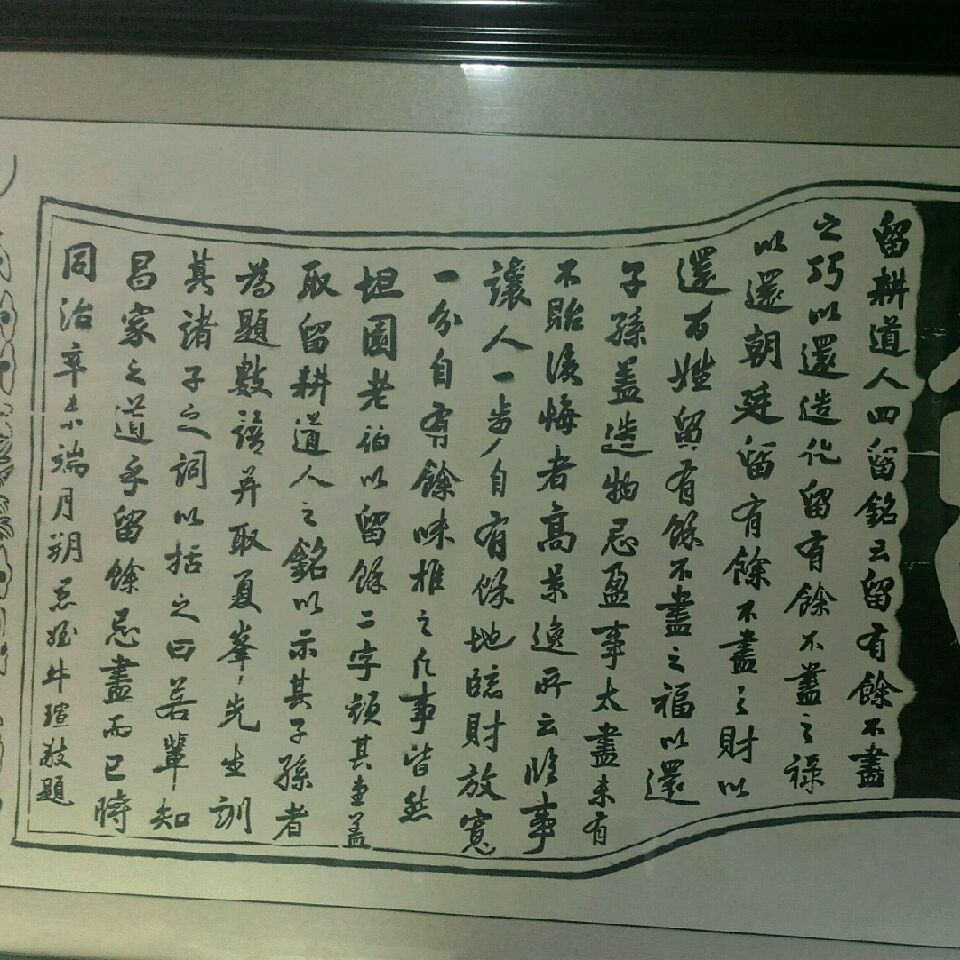 留耕道人四留銘云留有餘不盡
之巧以還造化留有餘不盡之祿
以還朝廷留有餘不盡之財以
還百姓留有餘不盡之福以還
子孫蓋造物忌盈事太盡未有
不貽後悔者高景逸所云臨事
讓人一步自有餘地臨財放寬
一分自有餘味推之凡事皆然
坦園老伯以留餘二字顏其堂蓋
取留耕道人之銘以示其子孫者
為題數語并取夏峯先生訓
其諸子之詞以括之曰若輩知
昌家之道乎留餘忌盡而已時
同治辛未端月朔愚姪牛瑄敬題